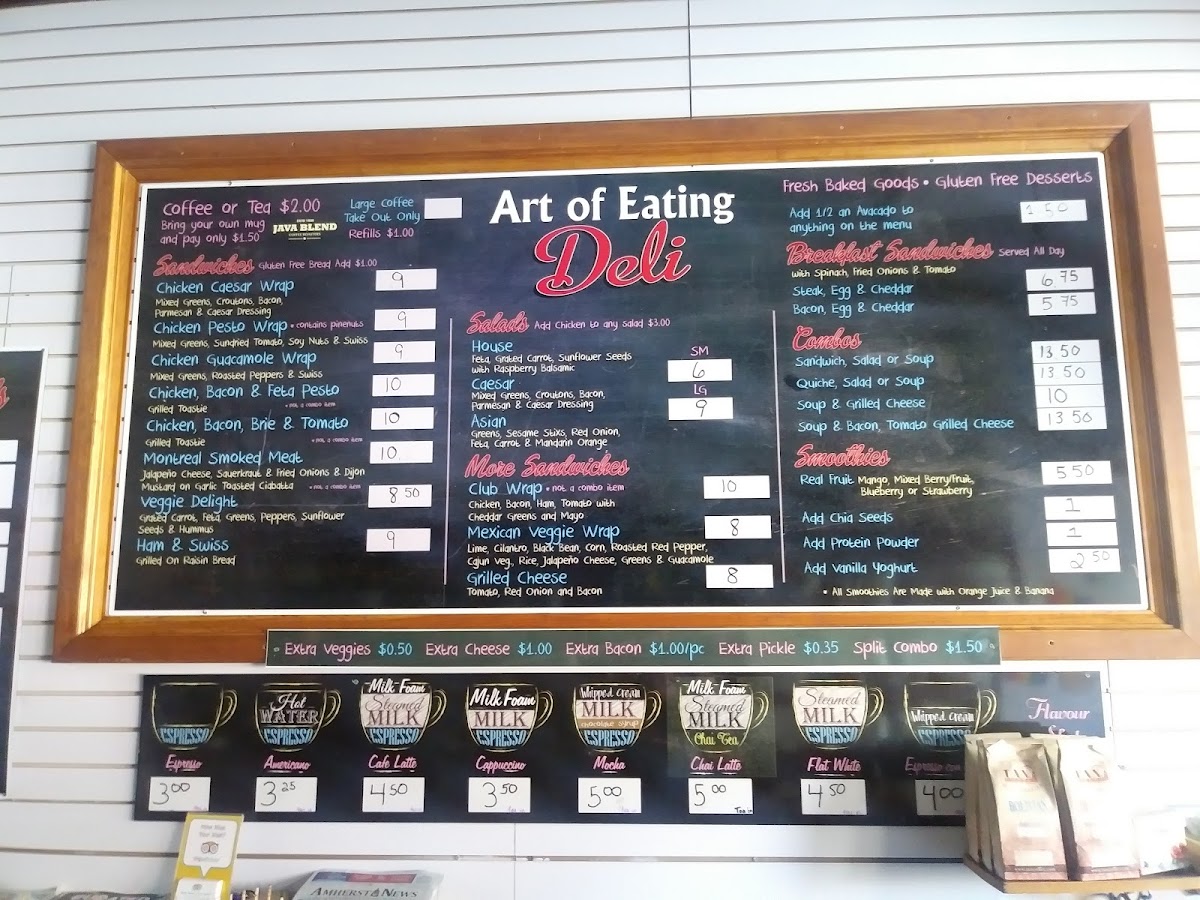 Art of Eating
Deli
Coffee or Tea $2.00
Bring your own mug
and pay only $1.50
JAVA BLEND
Large Coffee
Take Out Only
Refills $1.00
Sandwiches Gluten Free Bread Add $1.00
Chicken Caesar Wrap 9
Mixed Greens, Croutons, Bacon,
Parmesan & Caesar Dressing
Chicken Pesto Wrap • contains pinenuts 9
Mixed Greens, Sundried Tomato, Soy Nuts & Swiss
Chicken Guacamole Wrap 9
Mixed Greens, Roasted Peppers & Swiss
Chicken, Bacon & Feta Pesto 10
Grilled Toastie • not a combo item
Chicken, Bacon, Brie & Tomato 10
Grilled Toastie • not a combo item
Montreal Smoked Meat 10
Jalapeño Cheese, Sauerkraut & Fried Onions & Dijon
Mustard on Garlic Toasted Ciabatta • not a combo item
Veggie Delight 8 50
Grated Carrot, Feta, Greens, Peppers, Sunflower
Seeds & Hummus
Ham & Swiss 9
Grilled On Raisin Bread
Salads Add Chicken to any salad $3.00
House
Feta, Grated Carrot, Sunflower Seeds
with Raspberry Balsamic
SM
6
Caesar
Mixed Greens, Croutons, Bacon,
Parmesan & Caesar Dressing
LG
9
Asian
Greens, Sesame Stixs, Red Onion,
Feta, Carrot & Mandarin Orange
More Sandwiches
Club Wrap • not a combo item 10
Chicken, Bacon, Ham, Tomato with
Cheddar Greens and Mayo
Mexican Veggie Wrap 8
Lime, Cilantro, Black Bean, Corn, Roasted Red Pepper,
Cajun Veg., Rice, Jalapeño Cheese, Greens & Guacamole
Grilled Cheese 8
Tomato, Red Onion and Bacon
Fresh Baked Goods • Gluten Free Desserts
Add 1/2 an Avacado to
anything on the menu
1.50
Breakfast Sandwiches Served All Day
with Spinach, Fried Onions & Tomato
Steak, Egg & Cheddar 6.75
Bacon, Egg & Cheddar 5 75
Combos
Sandwich, Salad or Soup 13 50
Quiche, Salad or Soup 13 50
Soup & Grilled Cheese 10
Soup & Bacon, Tomato Grilled Cheese 13 50
Smoothies
Real Fruit Mango, Mixed Berry/Fruit, 5 50
Blueberry or Strawberry
Add Chia Seeds 1
Add Protein Powder 1
Add Vanilla Yoghurt 2 50
• All Smoothies Are Made with Orange Juice & Banana
Extra Veggies $0.50 Extra Cheese $1.00 Extra Bacon $1.00/pc Extra Pickle $0.35 Split Combo $1.50
ESPRESSO
Espresso
3 00
Hot
WATER
ESPRESSO
Americano
3 25
Milk Foam
Steamed
MILK
ESPRESSO
Cafe Latte
4 50
Milk Foam
MILK
ESPRESSO
Cappuccino
3 50
Whipped Cream
MILK
chocolate syrup
ESPRESSO
Mocha
5 00
Milk Foam
Steamed
MILK
Chai Tea
Chai Latte
5 00
Steamed
MILK
ESPRESSO
Flat White
4 50
Whipped Cream
ESPRESSO
Espresso con
4 00
Flavour
AMHERST NEWS